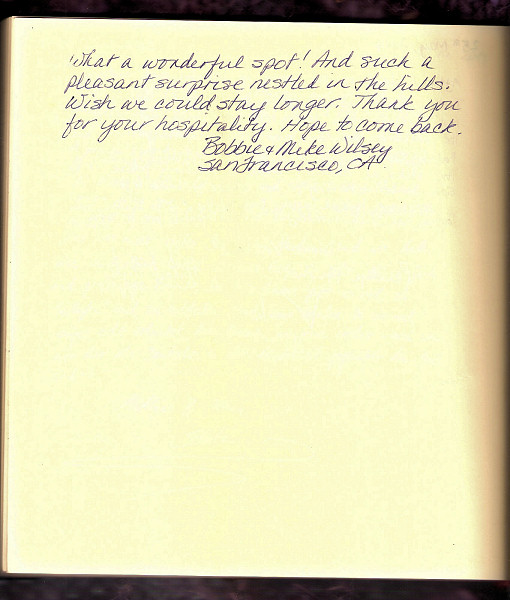 What a wonderful spot! And such a
pleasant surprise nestled in the hills.
Wish we could stay longer. Thank you
for your hospitality. Hope to come back.
Bobbie & Mike Wilsey
San Francisco, CA